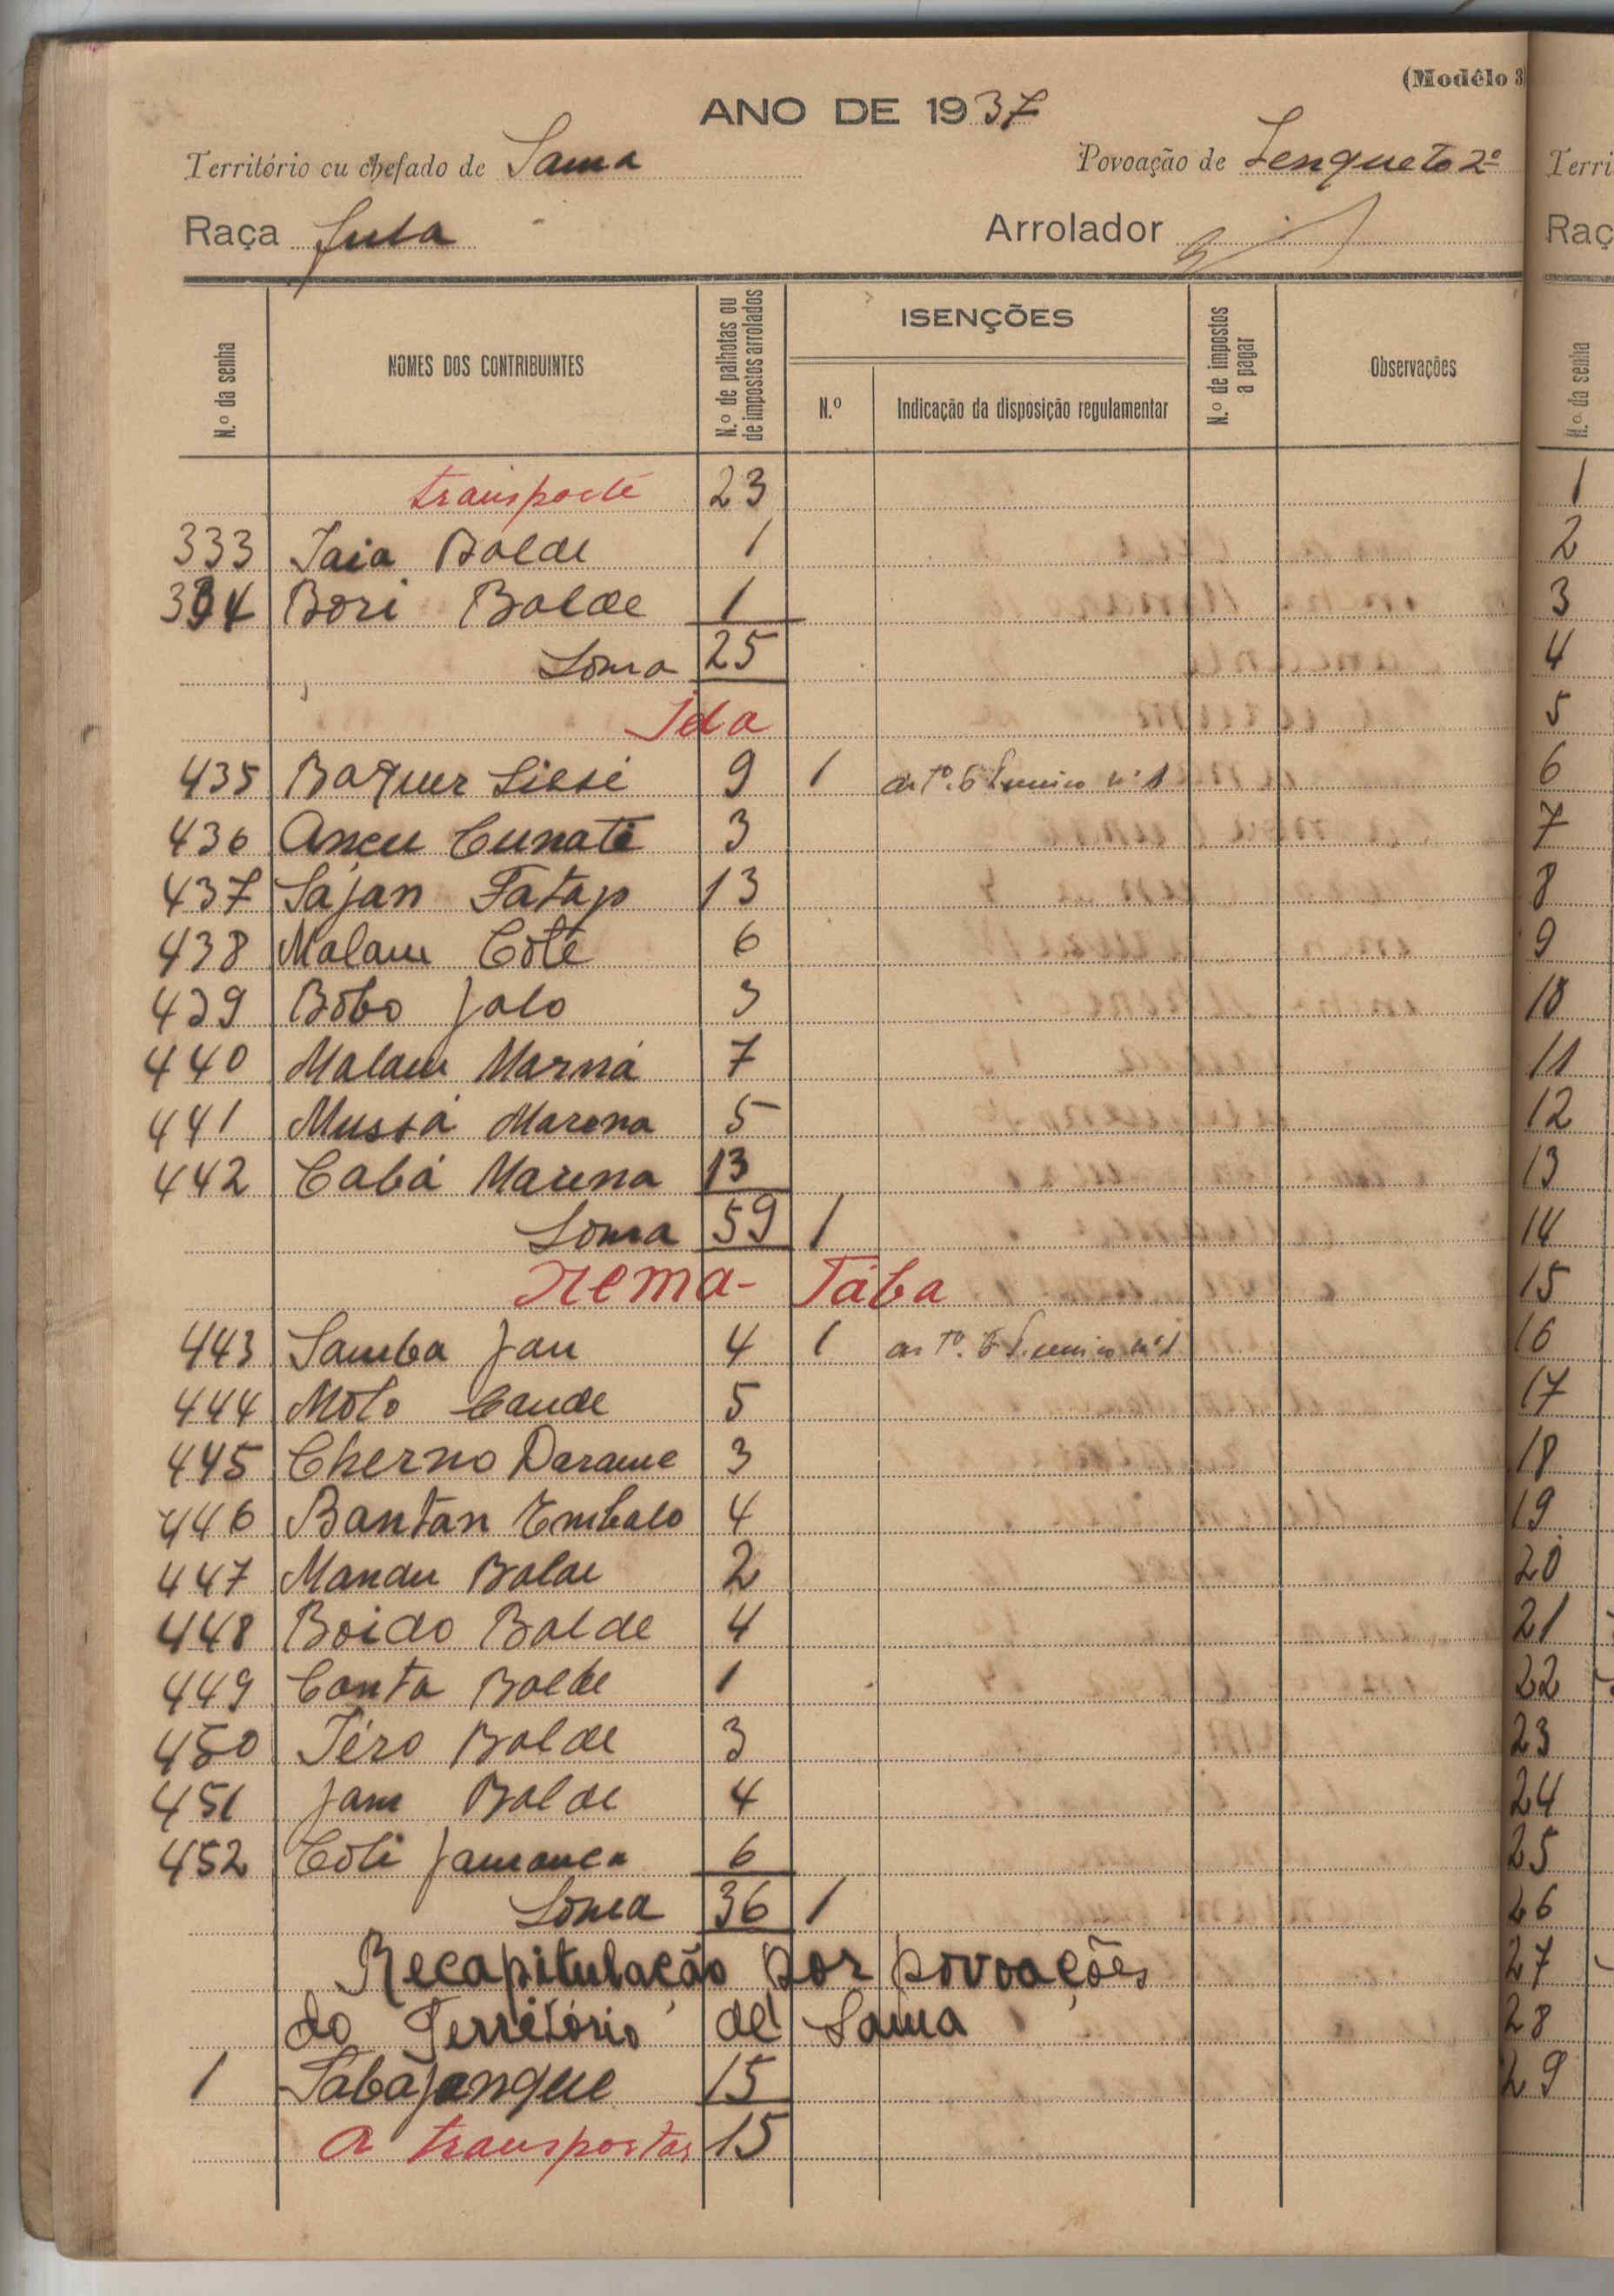 (Modêlo 3
ANO DE 1937
Território ou chefado de Sama
Povoação de Lenqueto 2º
Raça fula
Arrolador
N.º da senha
NOMES DOS CONTRIBUINTES
N.º de palhotas ou de impostos arrolados
ISENÇÕES
N.º
Indicação da disposição regulamentar
N.º de impostos a pagar
Observações
transporte 23
333 Iaia Balde 1
334 Bori Balde 1
Soma 25
Ida
435 Baquer Sissé 9 1 artº. 6 § unico nº 1
436 Ansu Cunate 3
437 Sajan Fataj 13
438 Malam Coté 6
439 Bobo Jalo 3
440 Malam Marná 7
441 Mussá Marena 5
442 Cabá Marena 13
Soma 59 1
Nema-Tába
443 Samba Jau 4 1 artº. 6 § unico nº 1
444 Molo Cande 5
445 Cherno Darame 3
446 Bantan Embalo 4
447 Mandu Balde 2
448 Boido Balde 4
449 Canta Balde 1
450 Téro Balde 3
451 Jam Balde 4
452 Coli Jamanca 6
Soma 36 1
Recapitulação por povoações
do Território de Sama
1 Sabajanque 15
a transportar 15
Terri
Raç
N.º da senha
1
2
3
4
5
6
7
8
9
10
11
12
13
14
15
16
17
18
19
20
21
22
23
24
25
26
27
28
29